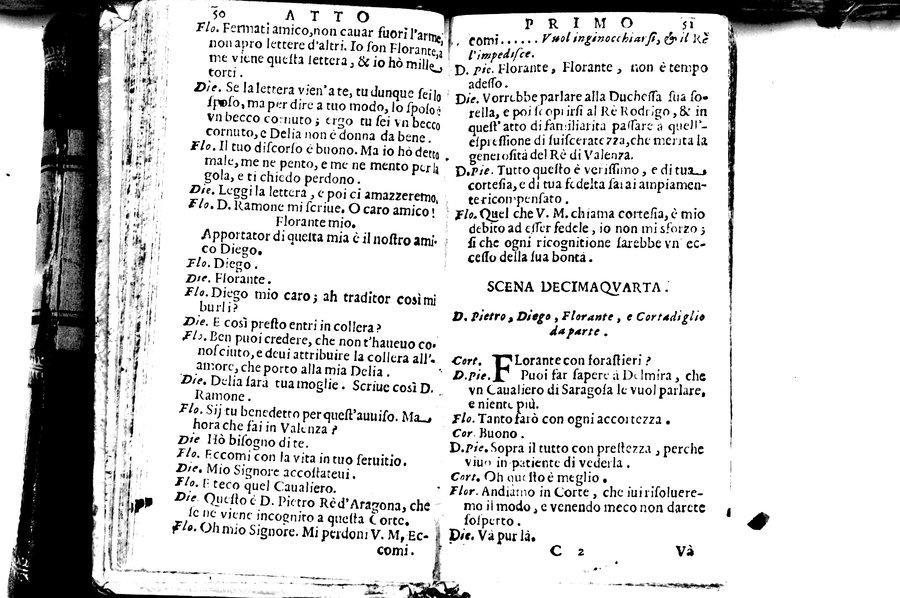 50 ATTO
Flo. Fermati amico, non cauar fuori l'arme,
non apro lettere d'altri. Io son Florante, a
me viene questa lettera, & io hò mille
torti.
Die. Se la lettera vien'a te, tu dunque sei lo
sposo, ma per dire a tuo modo, lo sposo è
vn becco cornuto; ergo tu sei vn becco
cornuto, e Delia non è donna da bene.
Flo. Il tuo discorso è buono. Ma io hò detto
male, me ne pento, e me ne mento per la
gola, e ti chiedo perdono.
Die. Leggi la lettera, e poi ci amazzeremo.
Flo. D. Ramone mi scriue. O caro amico!
Florante mio.
Apportator di questa mia è il nostro ami-
co Diego.
Flo. Diego.
Die. Florante.
Flo. Diego mio caro; ah traditor così mi
burli?
Die. E così presto entri in collera?
Flo. Ben puoi credere, che non t'haueuo co-
nosciuto, e deui attribuire la collera all'-
amore, che porto alla mia Delia.
Die. Delia sarà tua moglie. Scriue così D.
Ramone.
Flo. Sij tu benedetto per quest'auuiso. Ma
hora che fai in Valenza?
Die Hò bisogno di te.
Flo. Eccomi con la vita in tuo seruitio.
Die. Mio Signore accostateui.
Flo. E teco quel Caualiero.
Die. Questo è D. Pietro Rè d'Aragona, che
se ne viene incognito a questa Corte.
Flo. Oh mio Signore. Mi perdoni V. M, Ec-
comi.
PRIMO 51
comi...... Vuol inginocchiarsi, & il Rè
l'impedisce.
D. Pie. Florante, Florante, non è tempo
adesso.
Die. Vorrebbe parlare alla Duchessa sua so-
rella, e poi scoprirsi al Rè Rodrigo, & in
quest'atto di familiarità passare a quell'-
espressione di suisceratezza, che merita la
generosità del Rè di Valenza.
D. Pie. Tutto questo è verissimo, e di tua
cortesia, e di tua fedeltà sarai ampiamen-
te ricompensato.
Flo. Quel che V. M. chiama cortesia, è mio
debito ad esser fedele, io non mi sforzo;
sì che ogni ricognitione sarebbe vn ec-
cesso della sua bontà.
SCENA DECIMAQVARTA.
D. Pietro, Diego, Florante, e Cortadiglio
da parte.
Cort. FLorante con forastieri?
D. Pie. Puoi far sapere à Delmira, che
vn Caualiero di Saragosa le vuol parlare,
e niente più.
Flo. Tanto farò con ogni accortezza.
Cor. Buono.
D. Pie. Sopra il tutto con prestezza, perche
viuo inpatiente di vederla.
Cort. Oh questo è meglio.
Flor. Andiamo in Corte, che iui risoluere-
mo il modo, e venendo meco non darete
sospetto.
Die. Và pur là.
C 2 Và